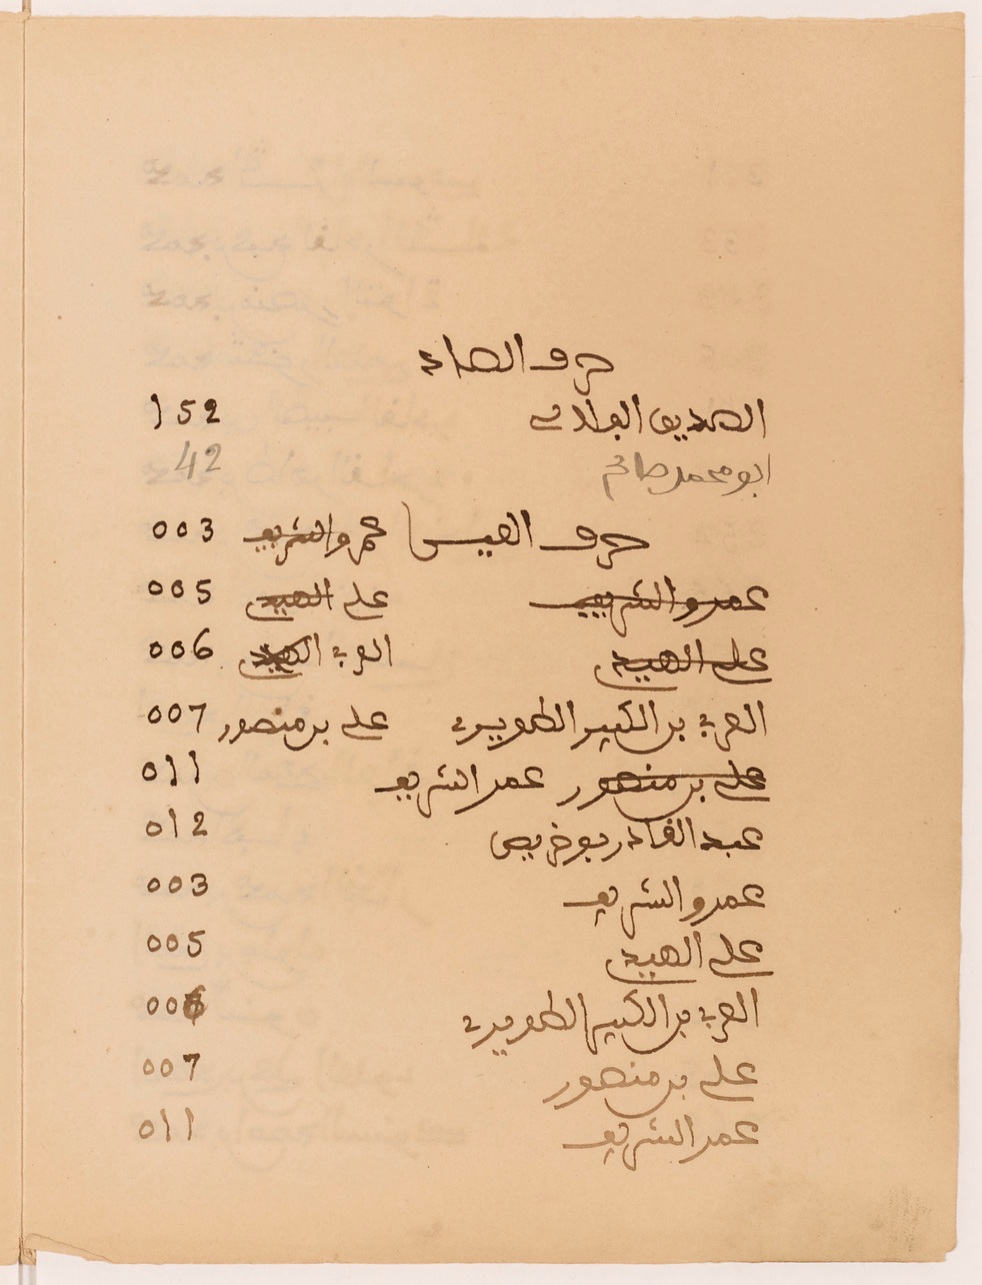 حرف الصاد
الصديق العلامي 152
ابو محمد صالح 42
حرف العين عمرو الشريف 003
عمرو الشريف علي الهيب 005
علي الهيب العربي 006
العربي بن الكبير الطويبي علي بن منصور 007
علي بن منصور عمر الشريف 011
عبد القادر بوخريص 012
عمرو الشريف 003
علي الهيب 005
العربي بن الكبير الطويبي 006
علي بن منصور 007
عمر الشريف 011